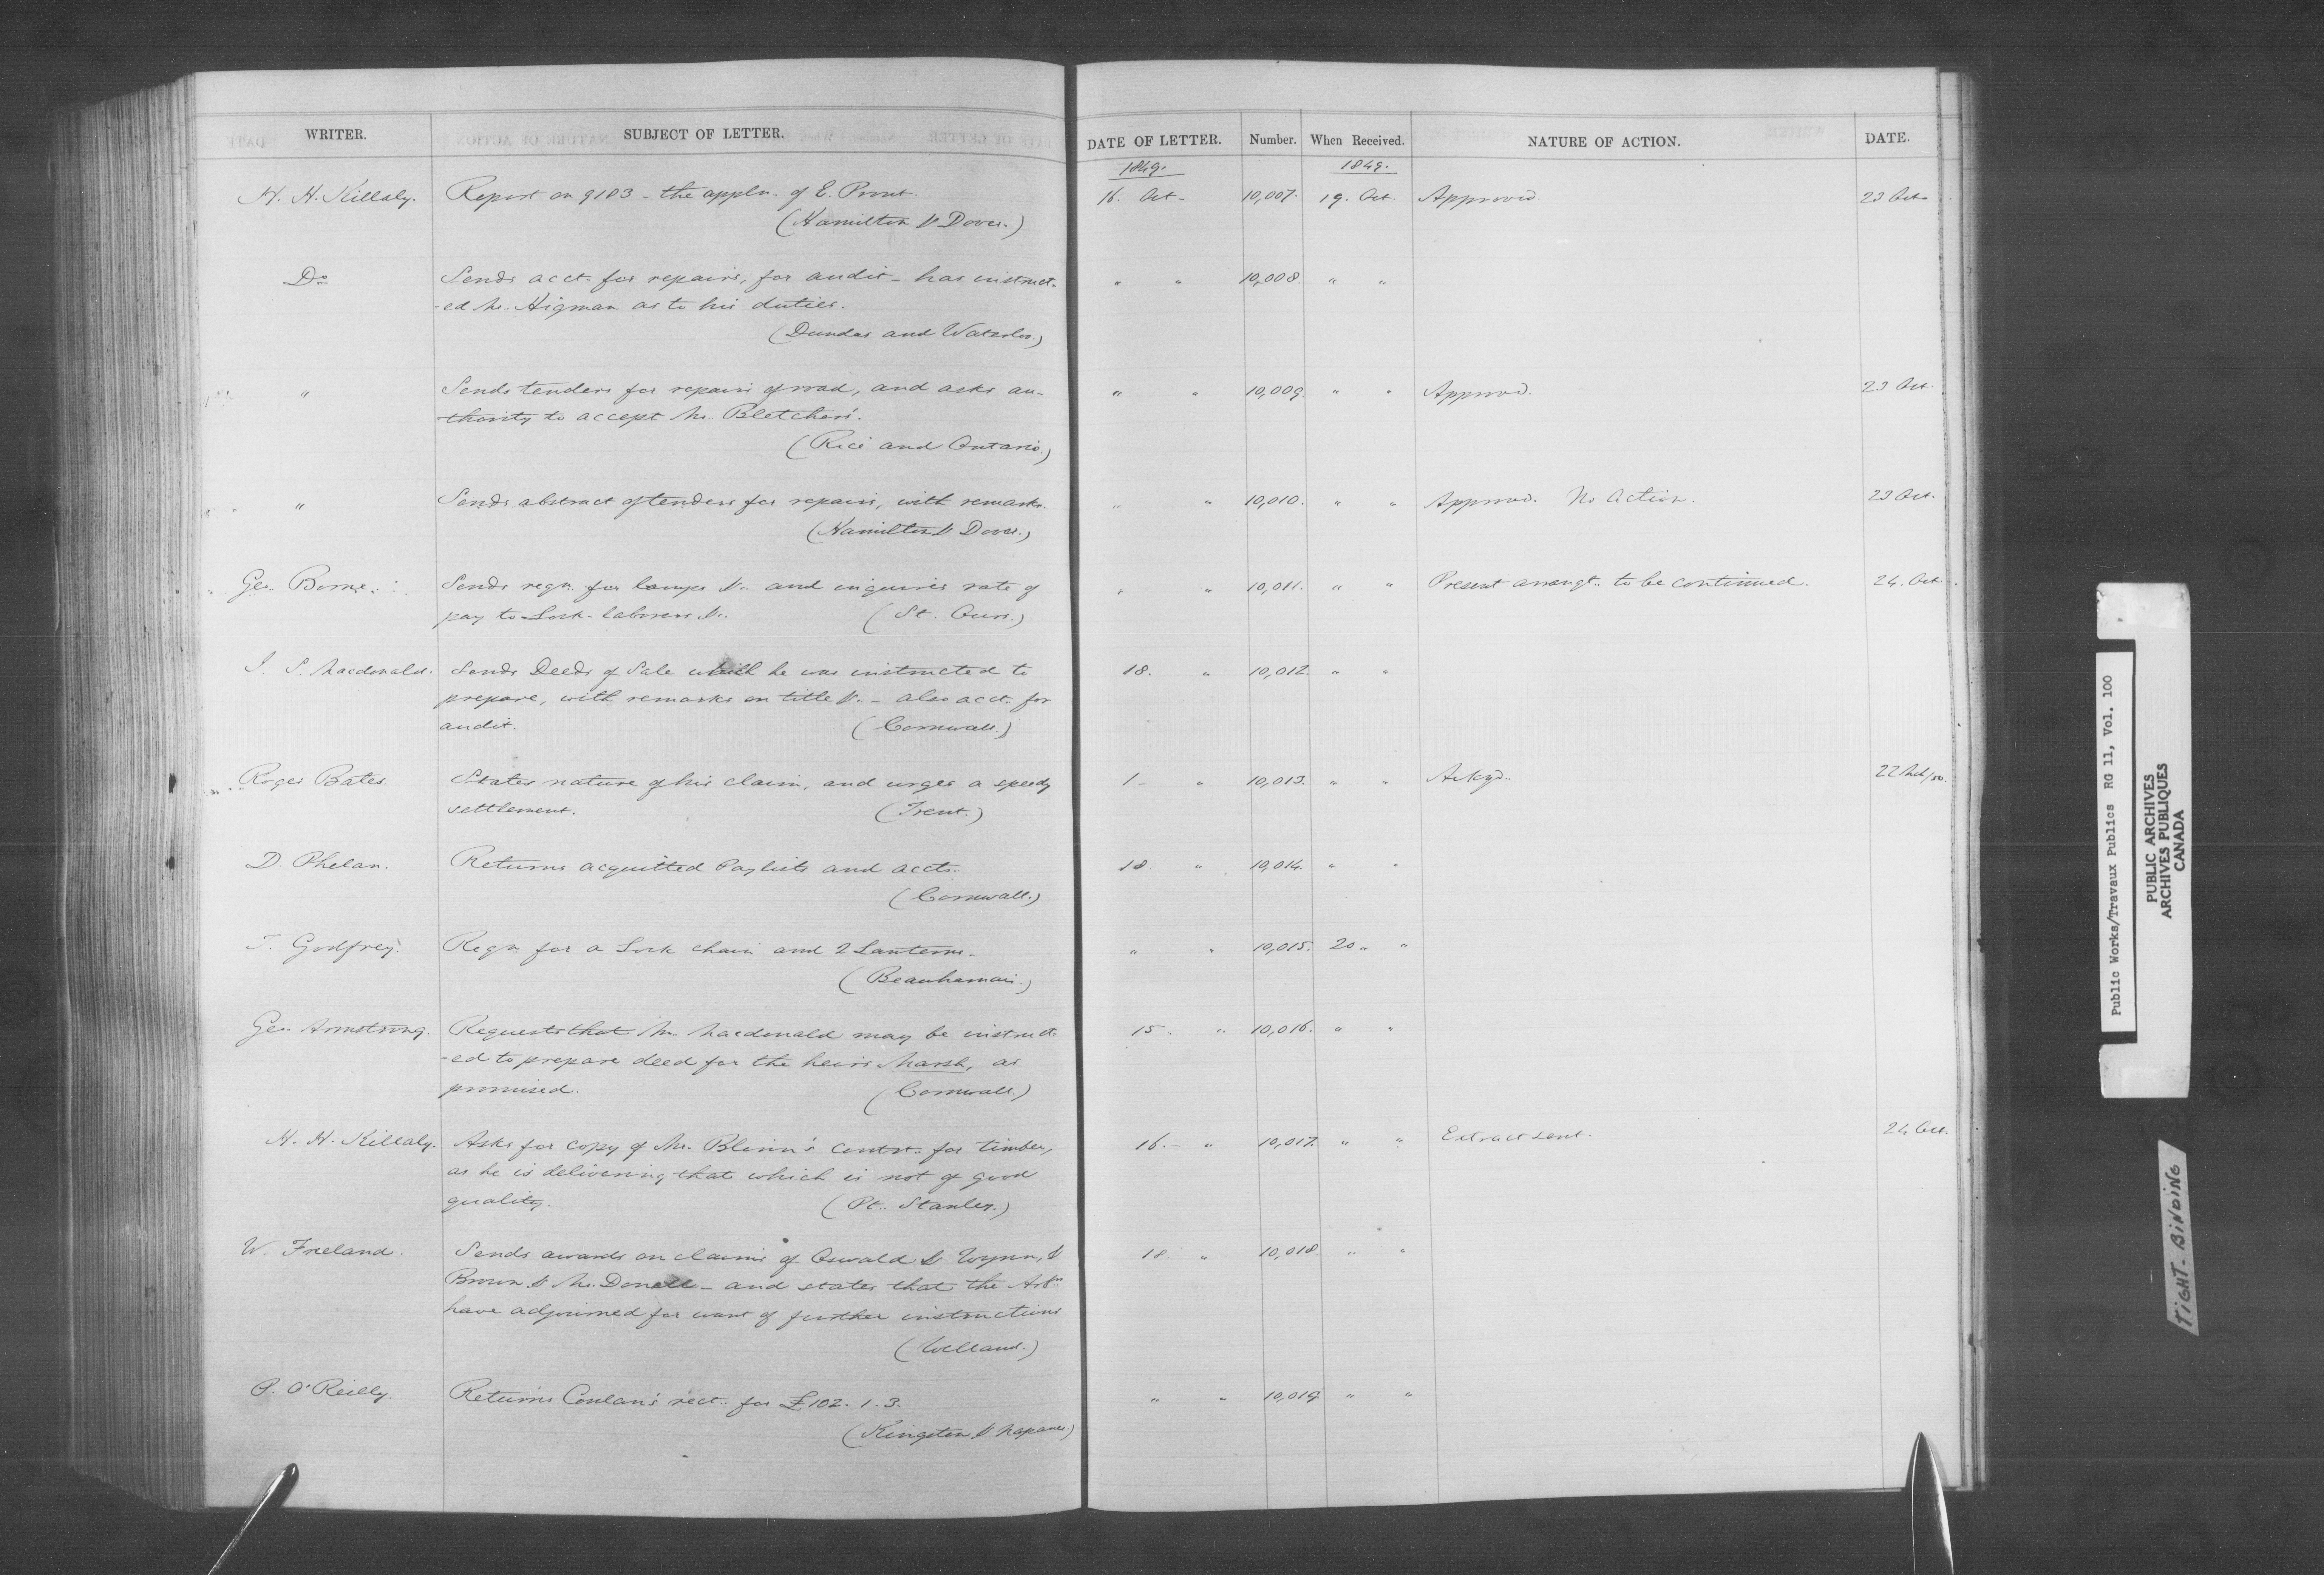 WRITER. SUBJECT OF LETTER. DATE OF LETTER. Number. When Received. NATURE OF ACTION. DATE.
1849. 1849.
H. H. Killaly. Report on 9183 - the appln. of E. Prout. 16. Oct. 10,007. 19. Oct. Approved. 23 Oct.
(Hamilton & Dover.)
Do Sends acct. for repairs, for audit - has instruct- " " 10,008. " "
-ed Mr. Higman as to his duties.
(Dundas and Waterloo.)
" Sends tenders for repairs of road, and asks au- " " 10,009. " " Approved. 23 Oct.
-thority to accept Mr. Bletcher's.
(Rice and Ontario.)
" Sends abstract of tenders for repairs, with remarks. " " 10,010. " " Approved. No Action. 23 Oct.
(Hamilton & Dover.)
Geo. Borne. Sends reqn. for lamps &c. and inquires rate of " " 10,011. " " Present arrangt. to be continued. 24. Oct.
pay to Lock-laborers &c. (St. Ours.)
J. S. Macdonald. Sends Deeds of Sale which he was instructed to 18. " 10,012. " "
prepare, with remarks on title &c. - also acct. for
audit. (Cornwall.)
Roger Bates. States nature of his claim, and urges a speedy 1 - " 10,013. " " Ackgd. 22 Feb/50.
settlement. (Trent.)
D. Phelan. Returns acquitted Paylists and accts. 18. " 10,014. " "
(Cornwall.)
T. Godfrey. Reqn. for a Lock chain and 2 Lanterns. " " 10,015. 20 " "
(Beauharnois.)
Geo. Armstrong. Requests that Mr. Macdonald may be instruct- 15. " 10,016. " "
-ed to prepare deed for the heirs Marsh, as
promised. (Cornwall.)
H. H. Killaly. Asks for copy of Mr. Blinn's contrt. for timber, 16. - " 10,017. " " Extract sent. 24 Oct.
as he is delivering that which is not of good
quality. (Pt. Stanley.)
W. Freeland. Sends awards on claims of Oswald & Wynn, & 18. " 10,018. " "
Brown & McDonell - and states that the Arbrs
have adjourned for want of further instructions
(Welland.)
P. O'Reilly. Returns Conlan's rect. for £102. 1. 3. " " 10,019 " "
(Kingston & Napanee)
Public Works/Travaux Publics RG 11, Vol. 100
PUBLIC ARCHIVES
ARCHIVES PUBLIQUES
CANADA
TIGHT BINDING